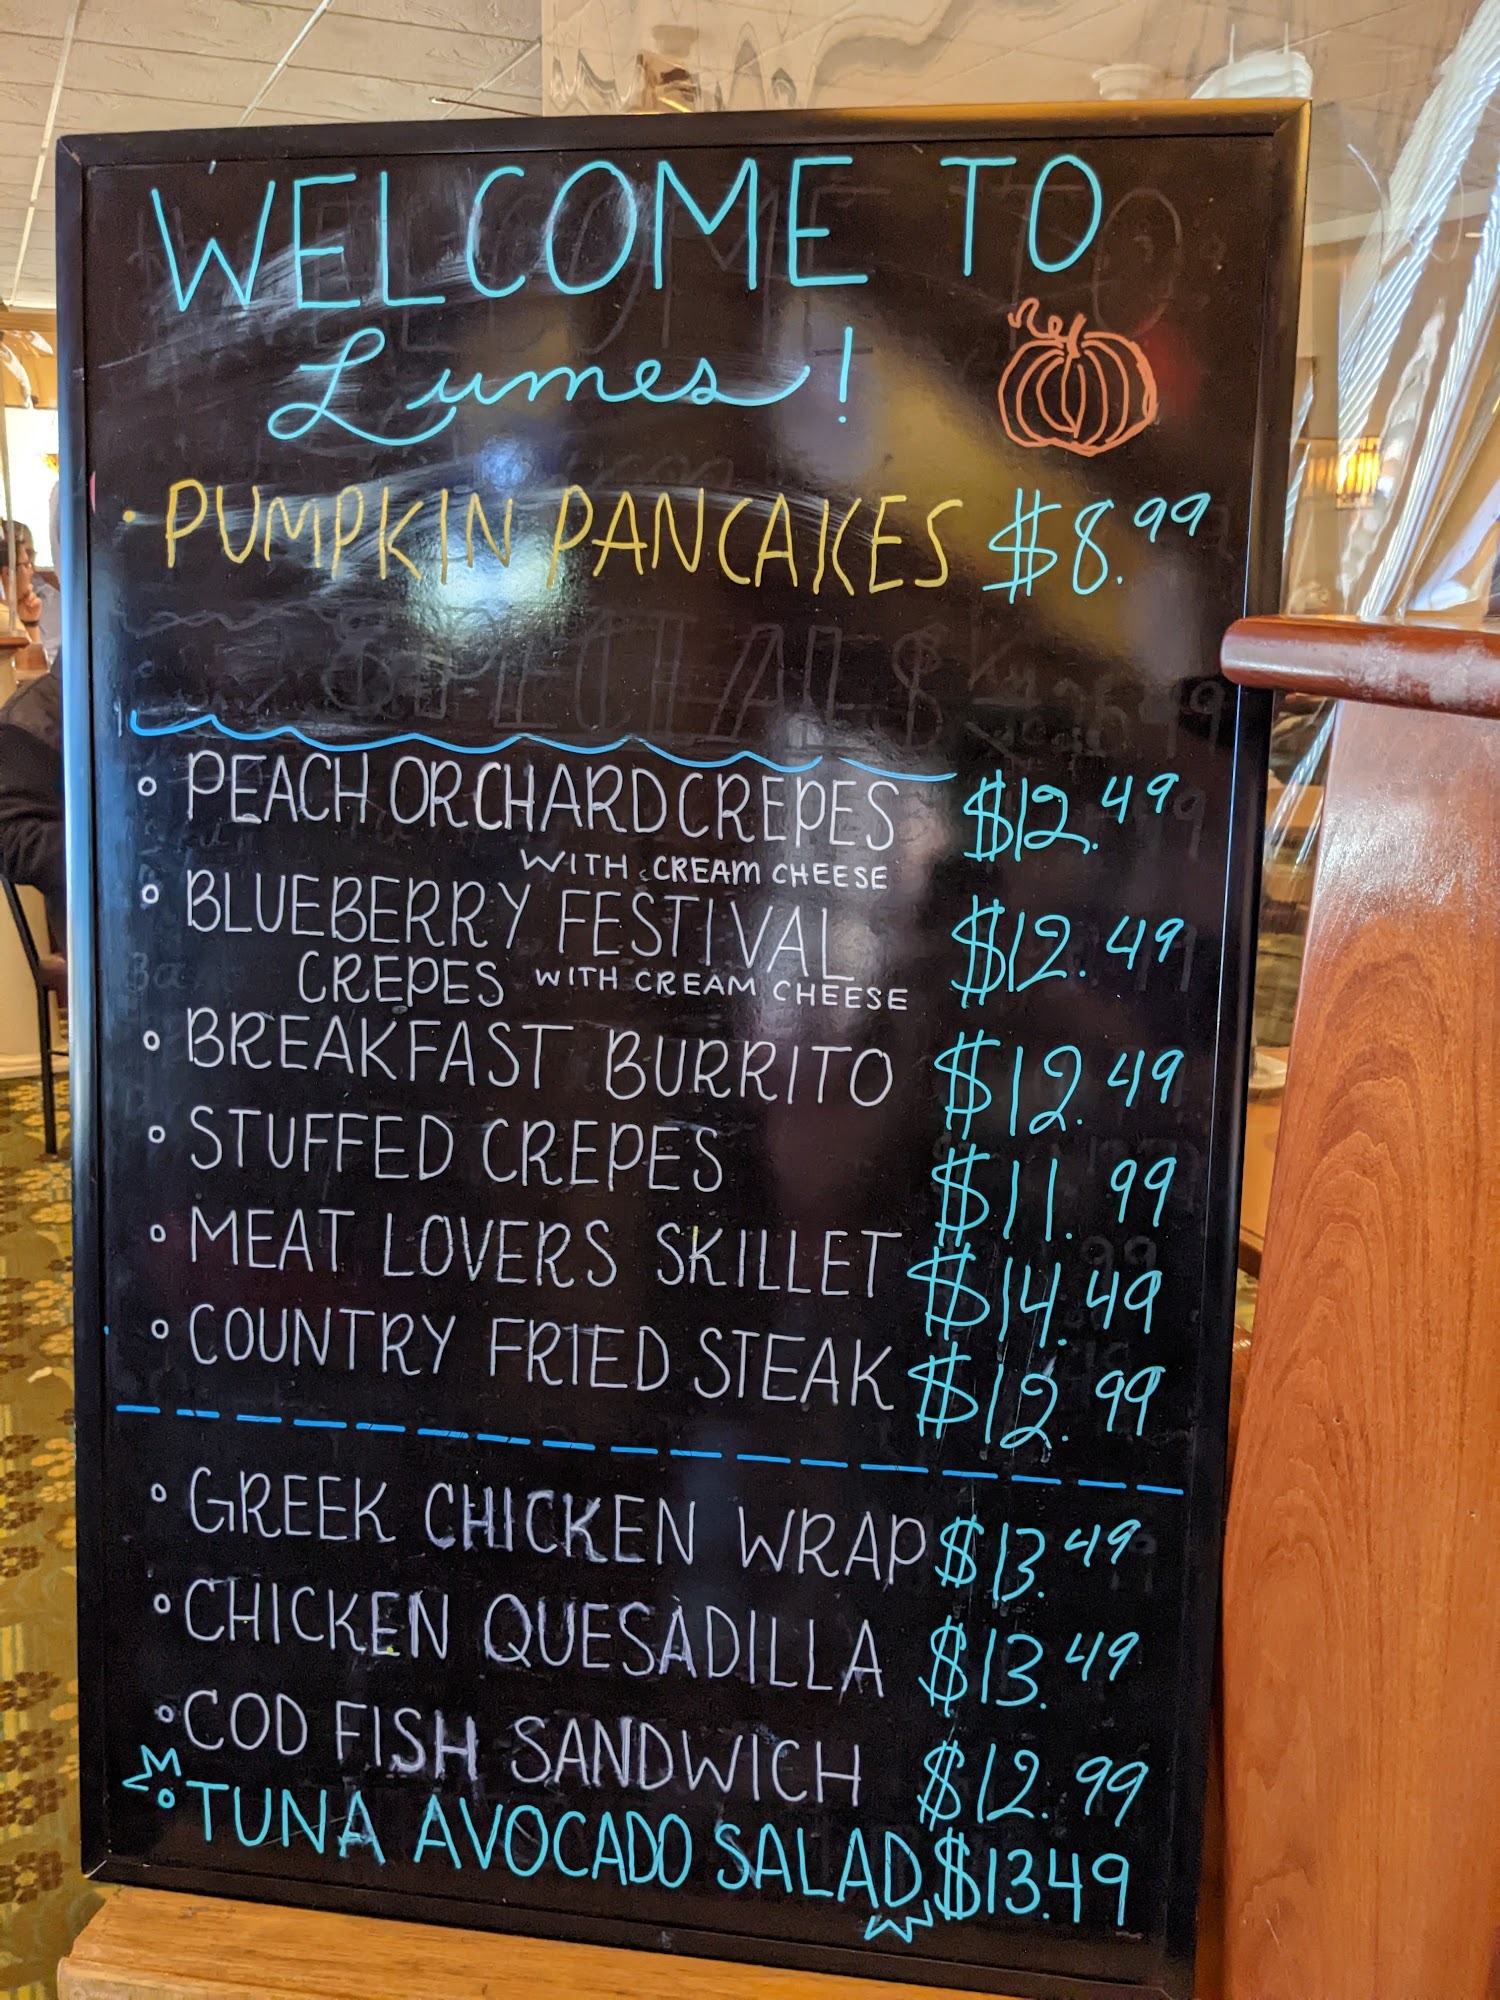 WELCOME TO
Lumes!
• PUMPKIN PANCAKES $8.99
SPECIALS
• PEACH ORCHARD CREPES $12.49
WITH CREAM CHEESE
• BLUEBERRY FESTIVAL $12.49
CREPES WITH CREAM CHEESE
• BREAKFAST BURRITO $12.49
• STUFFED CREPES $11.99
• MEAT LOVERS SKILLET $14.49
• COUNTRY FRIED STEAK $12.99
• GREEK CHICKEN WRAP $13.49
• CHICKEN QUESADILLA $13.49
• COD FISH SANDWICH $12.99
• TUNA AVOCADO SALAD $13.49